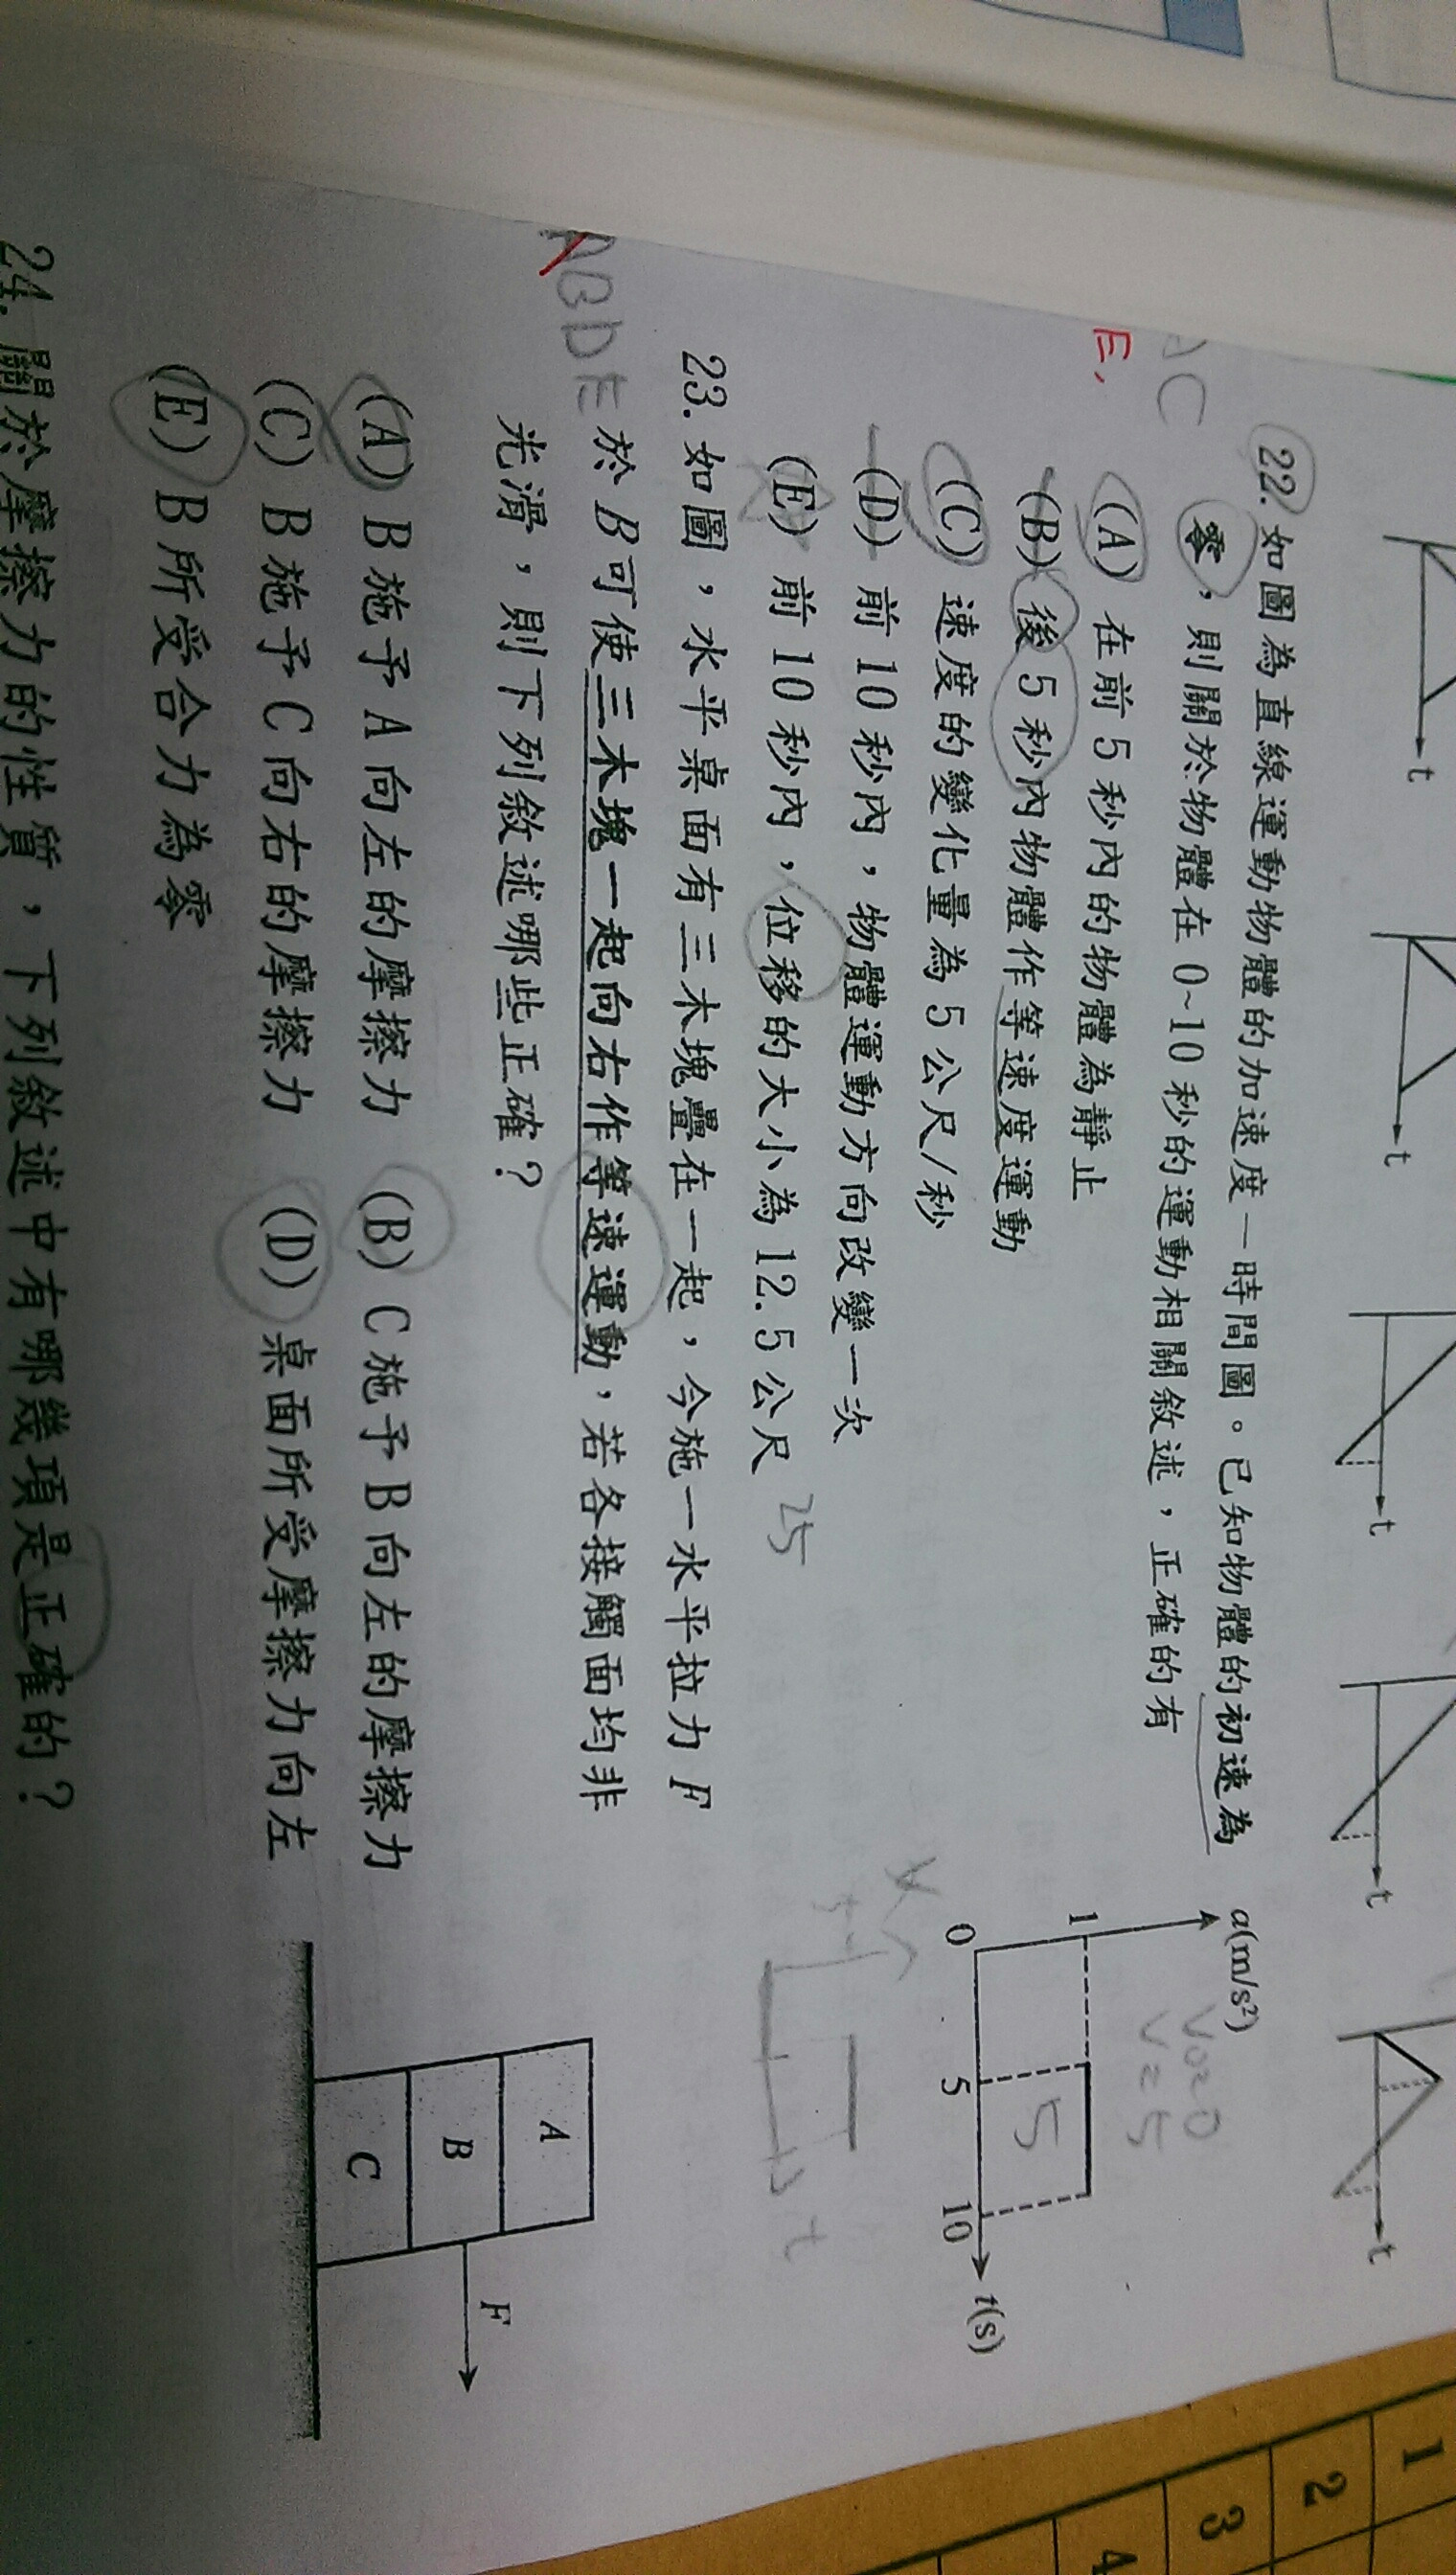 t
t
t
t
t
22. 如圖為直線運動物體的加速度—時間圖。已知物體的初速為
零，則關於物體在 0~10 秒的運動相關敘述，正確的有
(A) 在前 5 秒內的物體為靜止
(B) 後 5 秒內物體作等速度運動
(C) 速度的變化量為 5 公尺/秒
(D) 前 10 秒內，物體運動方向改變一次
(E) 前 10 秒內，位移的大小為 12.5 公尺
25
C
E,
a(m/s²)
1
0
5
10
t(s)
V0=0
V=5
5
V
t
23. 如圖，水平桌面有三木塊疊在一起，今施一水平拉力 F
於 B 可使三木塊一起向右作等速運動，若各接觸面均非
光滑，則下列敘述哪些正確？
ABDE
(A) B 施予 A 向左的摩擦力 (B) C 施予 B 向左的摩擦力
(C) B 施予 C 向右的摩擦力 (D) 桌面所受摩擦力向左
(E) B 所受合力為零
A
B
C
F
24. 關於摩擦力的性質，下列敘述中有哪幾項是正確的？
1
2
3
4